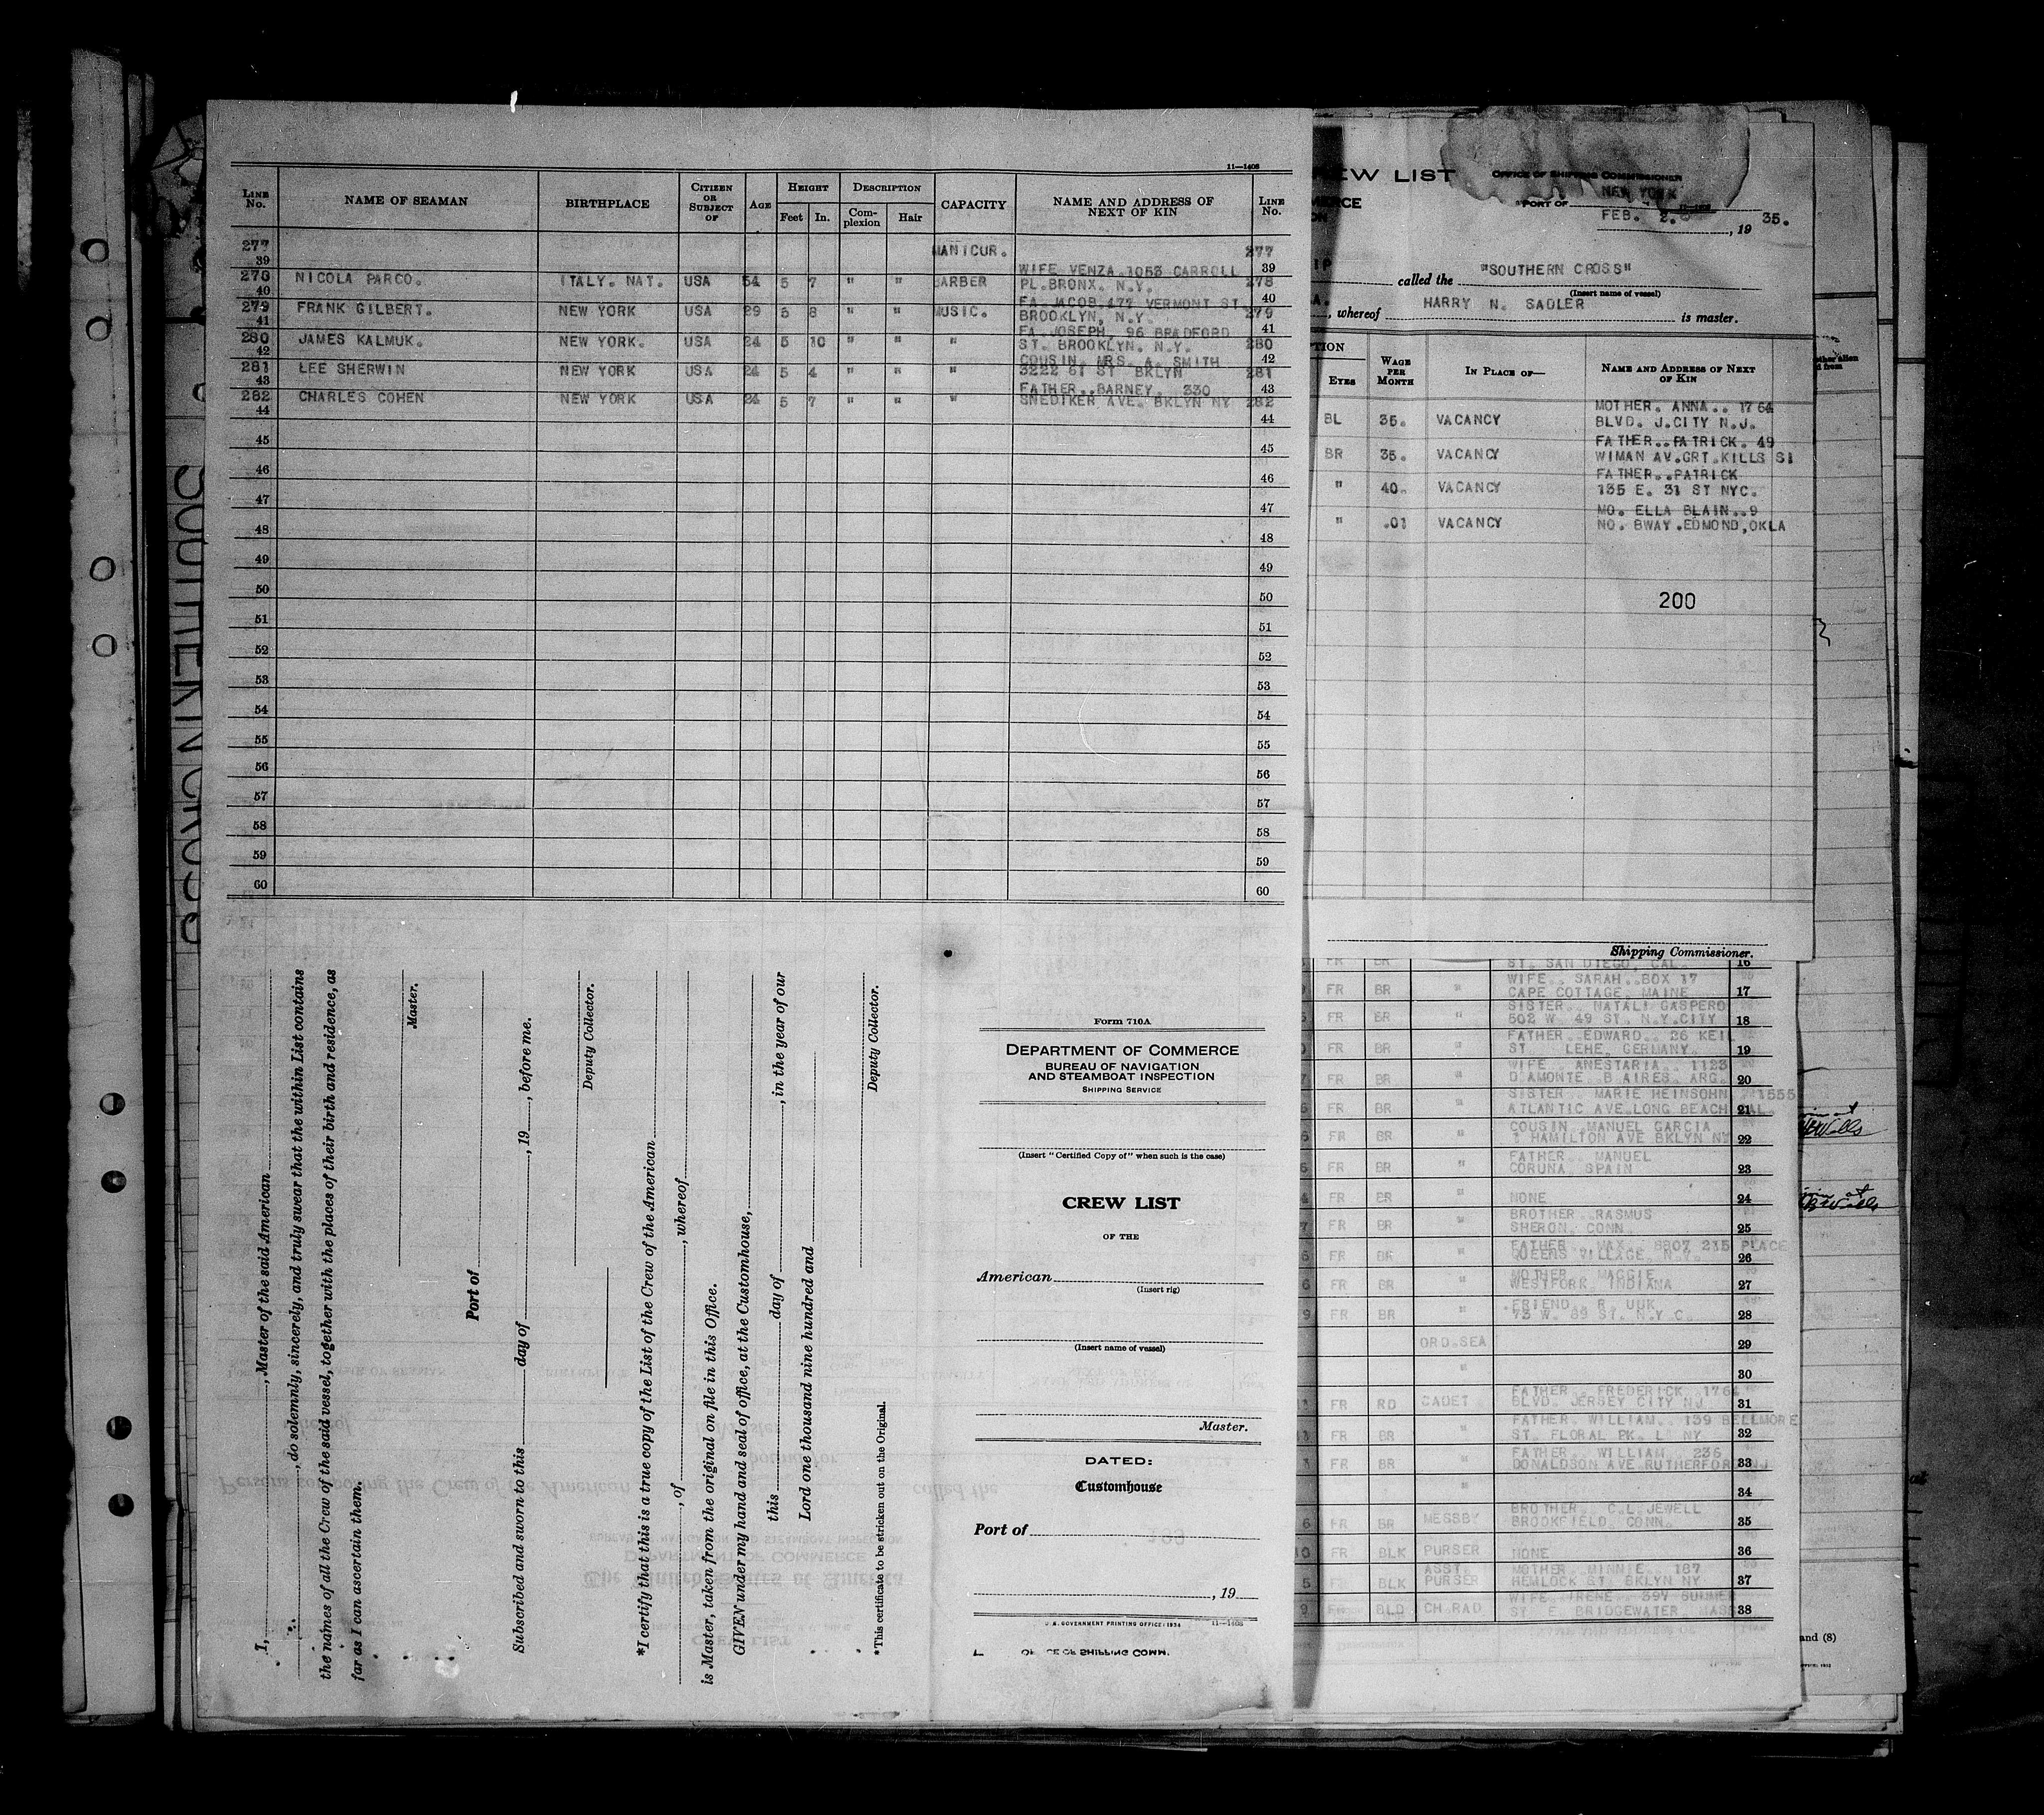 11—1408
LINE No. NAME OF SEAMAN BIRTHPLACE CITIZEN OR SUBJECT OF AGE HEIGHT Feet In. DESCRIPTION Complexion Hair CAPACITY NAME AND ADDRESS OF NEXT OF KIN LINE No.
277 MANICUR. 277
39 WIFE VENZA 1053 CARROLL 39
278 NICOLA PARCO. ITALY. NAT. USA 54 5 7 " " BARBER PL. BRONX. N.Y. 278
40 FA. JACOB 477 VERMONT ST 40
279 FRANK GILBERT. NEW YORK USA 29 5 8 " " MUSIC. BROOKLYN, N.Y. 279
41 FA JOSEPH, 96 BRADFORD 41
280 JAMES KALMUK. NEW YORK. USA 24 5 10 " " " ST. BROOKLYN. N.Y. 280
42 COUSIN. MRS. A. SMITH 42
281 LEE SHERWIN NEW YORK USA 24 5 4 " " " 3222 61 ST BKLYN 281
43 FATHER..BARNEY. 330 43
282 CHARLES COHEN NEW YORK USA 24 5 7 " " " SNEDIKER AVE. BKLYN NY 282
44 44
45 45
46 46
47 47
48 48
49 49
50 50
51 51
52 52
53 53
54 54
55 55
56 56
57 57
58 58
59 59
60 60
I, , Master of the said American
, do solemnly, sincerely, and truly swear that the within List contains
the names of all the Crew of the said vessel, together with the places of their birth and residence, as
far as I can ascertain them.
Master.
Port of
Subscribed and sworn to this day of , 19 , before me.
Deputy Collector.
*I certify that this is a true copy of the List of the Crew of the American
, of , whereof
is Master, taken from the original on file in this Office.
GIVEN under my hand and seal of office, at the Customhouse,
this day of , in the year of our
Lord one thousand nine hundred and
Deputy Collector.
*This certificate to be stricken out on the Original.
Form 710A
DEPARTMENT OF COMMERCE
BUREAU OF NAVIGATION
AND STEAMBOAT INSPECTION
SHIPPING SERVICE
(Insert "Certified Copy of" when such is the case)
CREW LIST
OF THE
American
(Insert rig)
(Insert name of vessel)
Master.
DATED:
Customhouse
Port of
, 19
U.S. GOVERNMENT PRINTING OFFICE: 1934 11—1408
OFFICE OF SHIPPING COMM.
EW LIST
OFFICE OF SHIPPING COMMISSIONER
NEW YORK
MERCE
PORT OF
FEB. 2. , 19 35.
IP called the "SOUTHERN CROSS"
(Insert name of vessel)
, whereof HARRY N. SADLER is master.
TION
EYES WAGE PER MONTH IN PLACE OF— NAME AND ADDRESS OF NEXT OF KIN
MOTHER. ANNA.. 1764
BL 35. VACANCY BLVD. J.CITY N.J.
FATHER..PATRICK. 49
BR 35. VACANCY WIMAN AV.GRT.KILLS SI
FATHER..PATRICK
" 40. VACANCY 135 E. 31 ST NYC.
MO. ELLA BLAIN..9
" .01 VACANCY NO. BWAY.EDMOND,OKLA
200
Shipping Commissioner.
FR BR ST. SAN DIEGO, CAL. 16
WIFE.. SARAH..BOX 17
FR BR " CAPE COTTAGE. MAINE 17
SISTER.. NATALI GASPERO
FR BR " 502 W. 49 ST. N.Y.CITY 18
FATHER..EDWARD.. 26 KEIL
FR BR " ST LEHE, GERMANY 19
WIFE.. ANESTARIA.. 1123
FR BR " D'AMONTE B AIRES. ARG. 20
SISTER.. MARIE HEINSOHN 1555
FR BR " ATLANTIC AVE LONG BEACH CAL. 21
COUSIN MANUEL GARCIA
FR BR " 1 HAMILTON AVE BKLYN NY 22
FATHER.. MANUEL
FR BR " CORUNA SPAIN 23
FR BR " NONE 24
BROTHER RASMUS
FR BR " SHERON. CONN. 25
FATHER.. MAX.. 8907 215 PLACE
FR BR " QUEENS VILLAGE. N.Y. 26
MOTHER MAGGIE
FR BR " WESTFORK. INDIANA 27
FRIEND.. R. UUK
FR BR " 73 W. 89 ST. N.Y.C. 28
ORD.SEA 29
" 30
FATHER.. FREDERICK. 1764
FR RD CADET BLVD. JERSEY CITY NJ. 31
FATHER. WILLIAM.. 139 BELLMORE
FR BR " ST. FLORAL PK. L NY 32
FATHER WILLIAM.. 236
FR BR " DONALDSON AVE RUTHERFORD NJ 33
" 34
BROTHER C.L.JEWELL
FR BR MESSBY BROOKFIELD. CONN. 35
FR BLK PURSER NONE 36
ASST. MOTHER MINNIE. 187
BLK PURSER HEMLOCK ST. BKLYN NY 37
WIFE IRENE 397 SUMMER
BLD CH.RAD ST E BRIDGEWATER MASS 38
and (8)
SOUTHERN CROSS